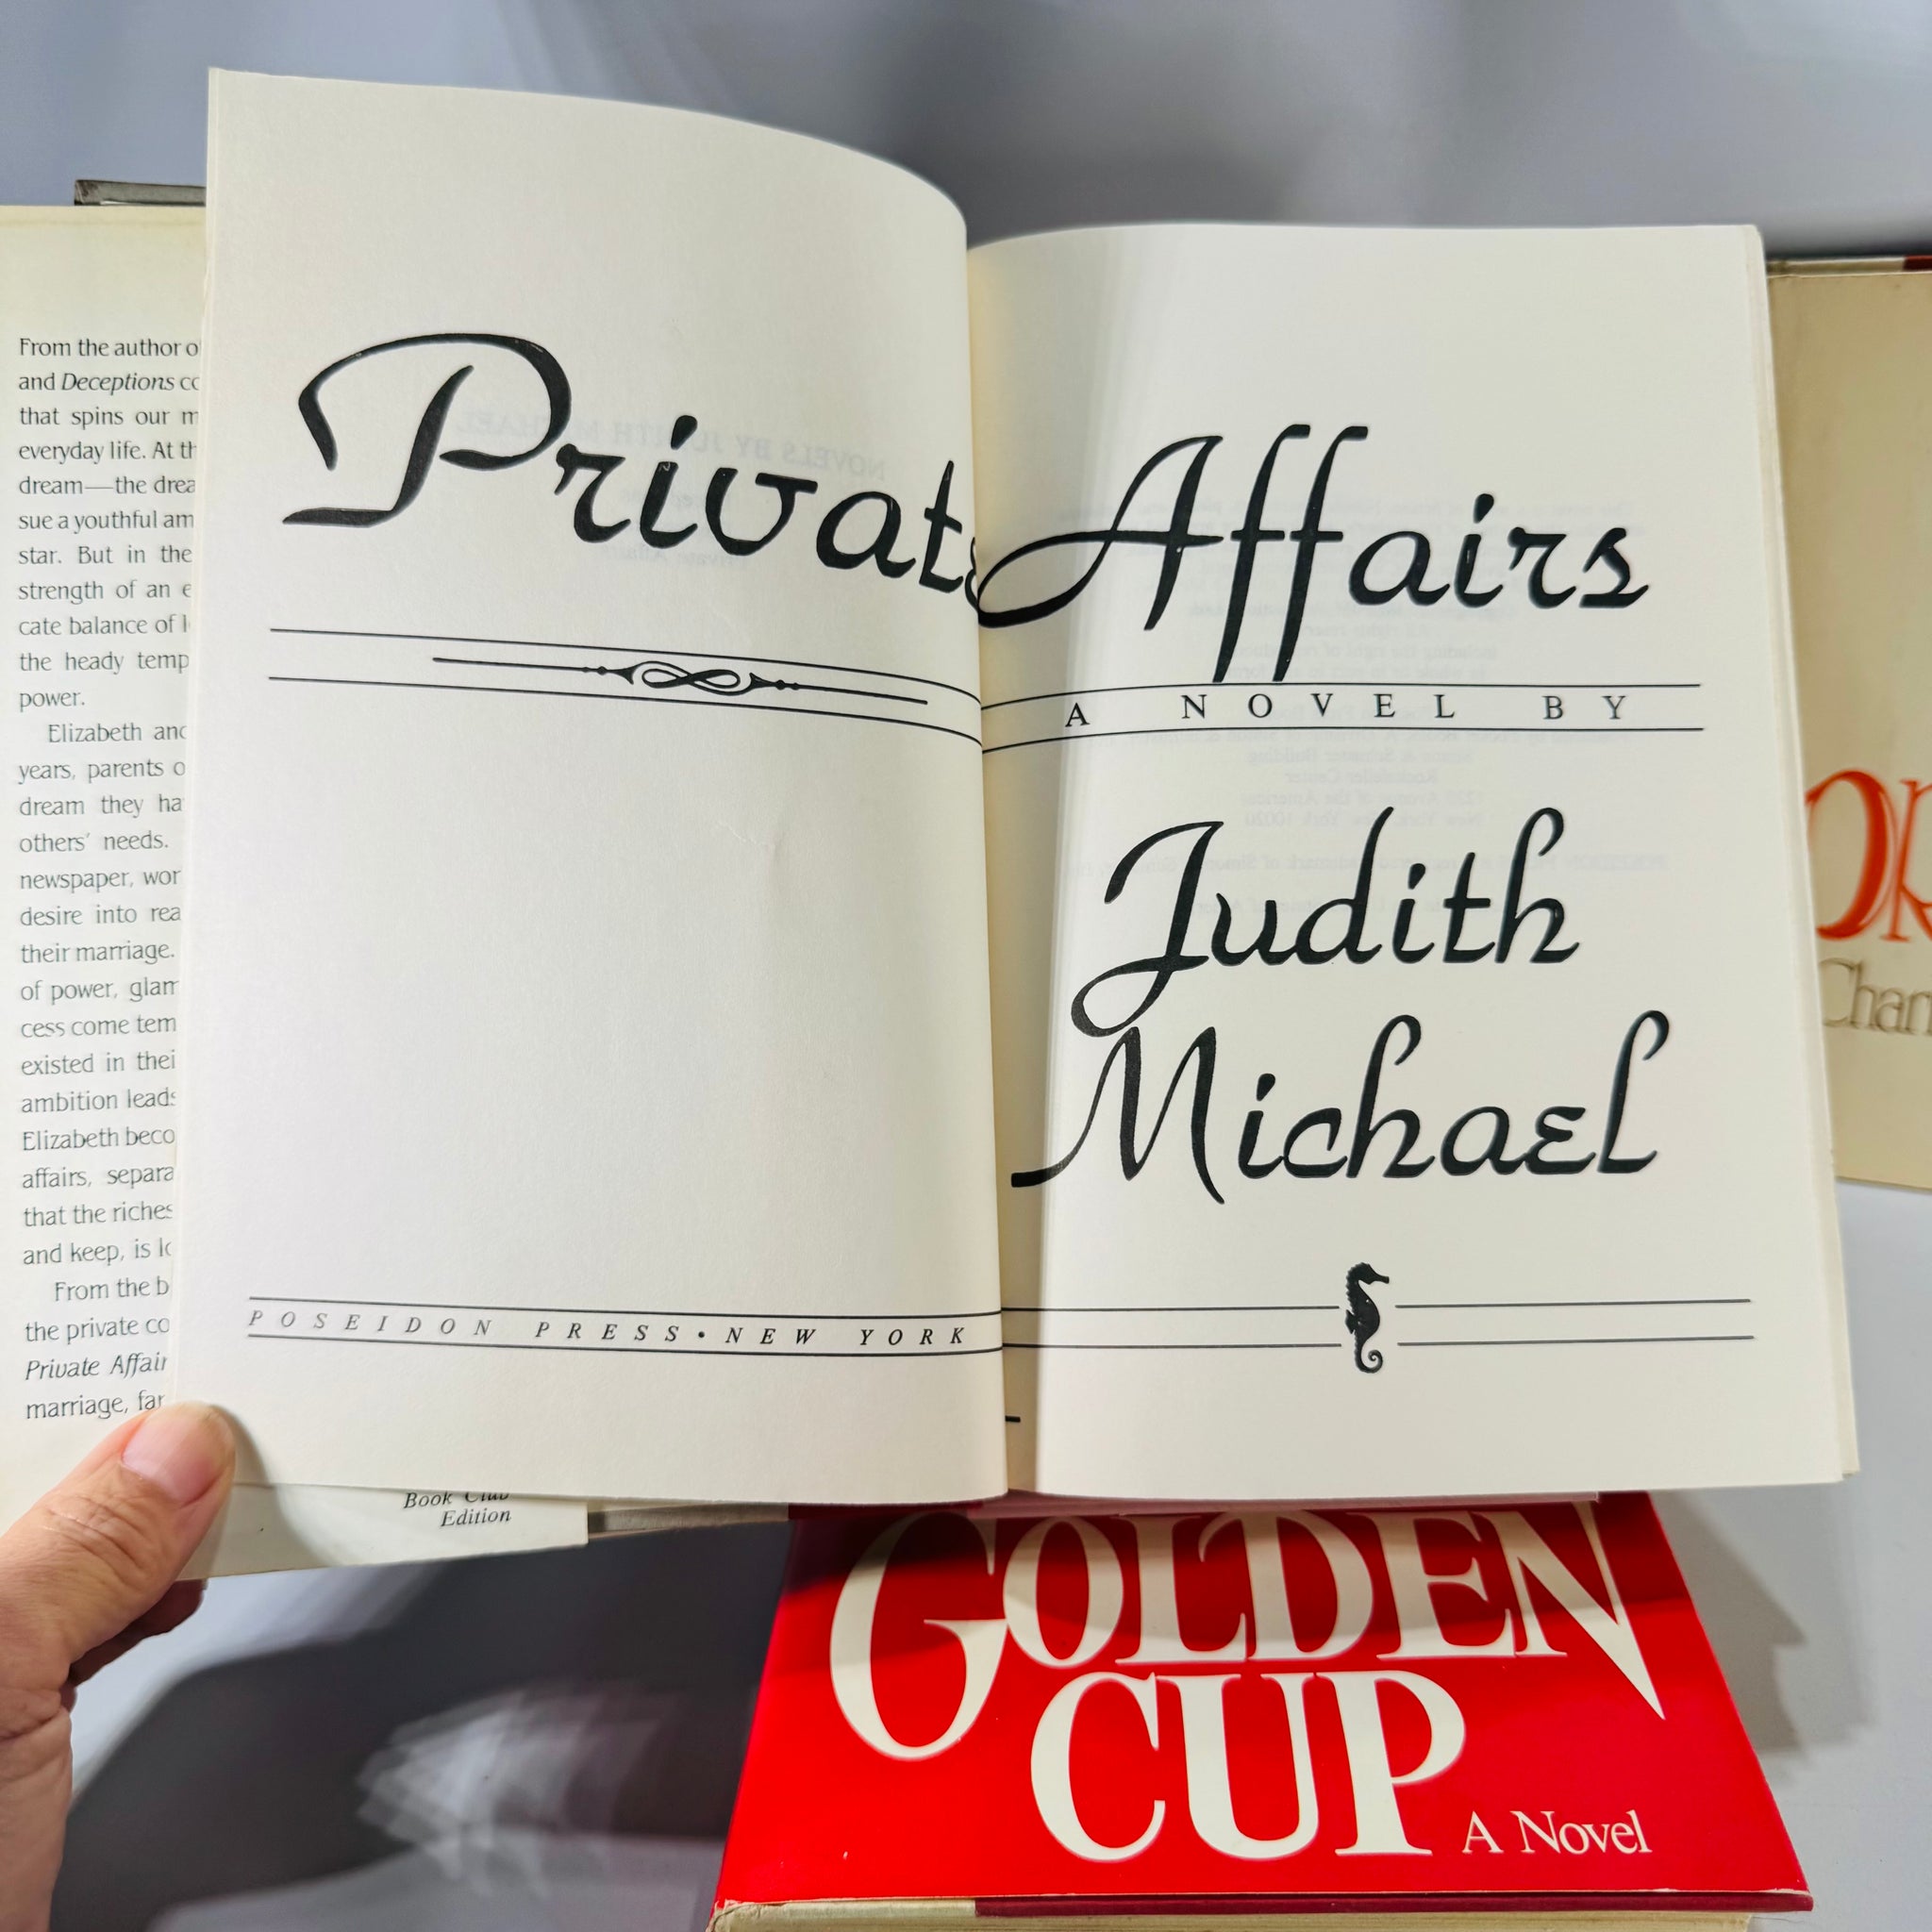 From the author o
and Deceptions co
that spins our m
everyday life. At th
dream—the drea
sue a youthful am
star. But in the
strength of an e
cate balance of l
the heady temp
power.
Elizabeth and
years, parents o
dream they ha
others' needs.
newspaper, wor
desire into rea
their marriage.
of power, glam
cess come tem
existed in thei
ambition leads
Elizabeth beco
affairs, separa
that the riches
and keep, is lo
From the b
the private co
Private Affair
marriage, far
Book Club
Edition
Private Affairs
A NOVEL BY
Judith
Michael
POSEIDON PRESS • NEW YORK
GOLDEN
CUP
A Novel
OR
Chan